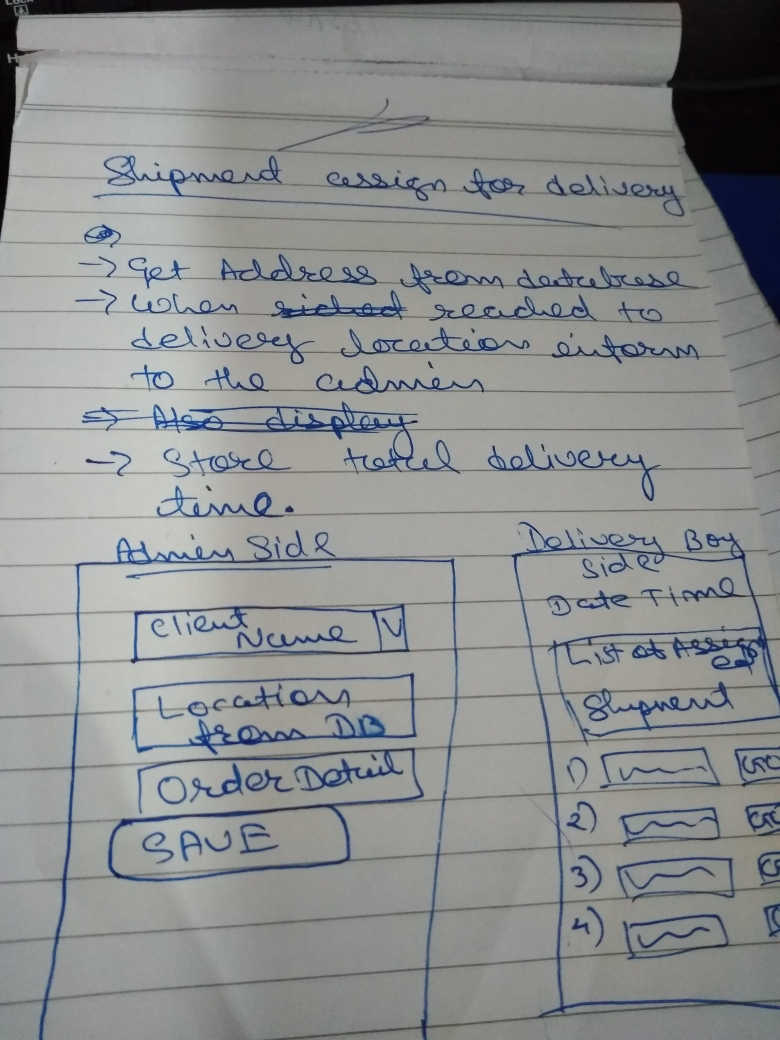 Shipment assign for delivery
→ Get Address from database
→ When reached to
delivery location inform
to the admin
⇒ Also display
→ Store total delivery
time.
Admin Side
Client
Name V
Location
from DB
Order Detail
SAVE
Delivery Boy
Side
Date Time
List of Assign
ed
Shipment
1)
2)
3)
4)